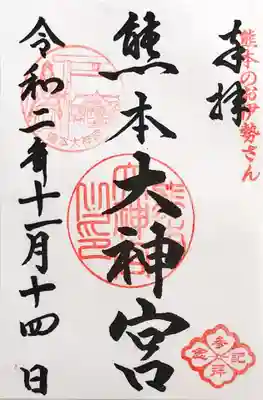 奉拝
熊本のお伊勢さん
熊本大神宮
令和二年十一月十四日
参拝記念